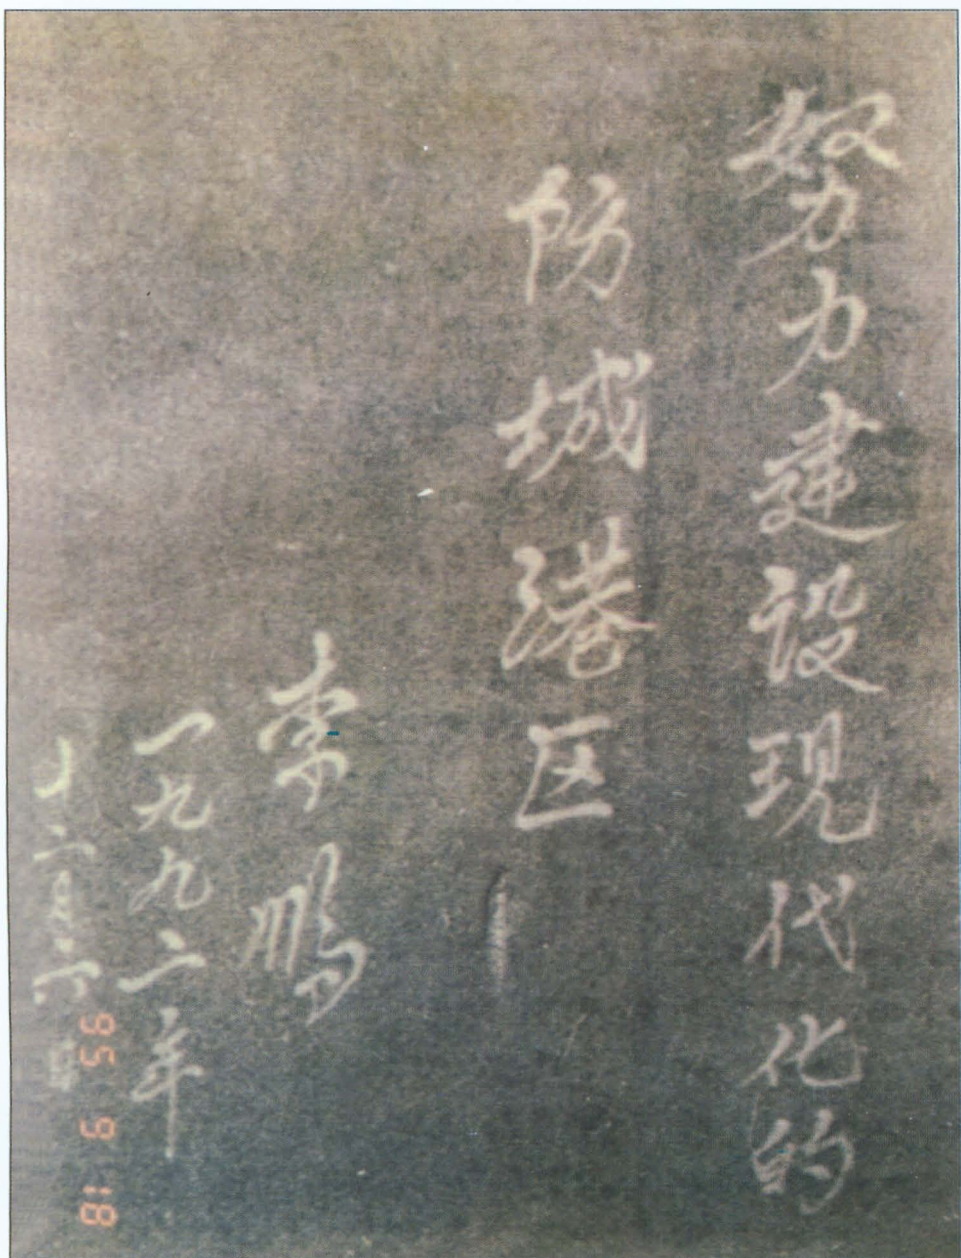 努力建设现代化的
防城港区
李鹏
一九九二年
十二月六日
95 9 18